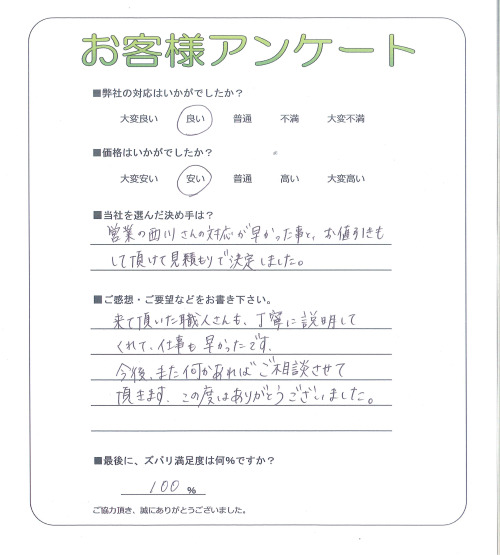 お客様アンケート
■弊社の対応はいかがでしたか？
大変良い 良い 普通 不満 大変不満
■価格はいかがでしたか？
大変安い 安い 普通 高い 大変高い
■当社を選んだ決め手は？
営業の西川さんの対応が早かった事と、お値引きも
して頂けて見積もりで決定しました。
■ご感想・ご要望などをお書き下さい。
来て頂いた職人さんも、丁寧に説明して
くれて、仕事も早かったです。
今後、また何かあればご相談させて
頂きます。この度はありがとうございました。
■最後に、ズバリ満足度は何%ですか？
100 %
ご協力頂き、誠にありがとうございました。